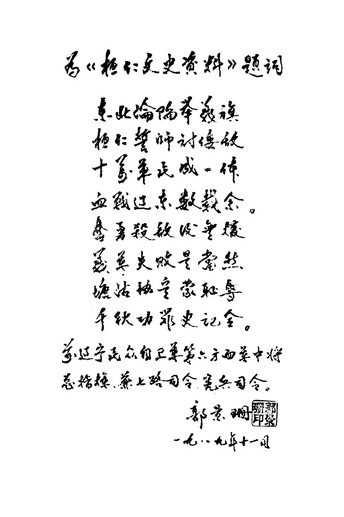 为《桓仁文史资料》题词
东北沦陷举义旗
桓仁誓师讨倭敌
十万军民成一体
血战辽东数载余。
奋勇杀敌后无援
义军失败是当然
塘沽协定蒙耻辱
千秋功罪史记全。
前辽宁民众自卫军第六方面军中将
总指挥、兼七路司令、宪兵司令。
郭景珊
一九八九年十一月